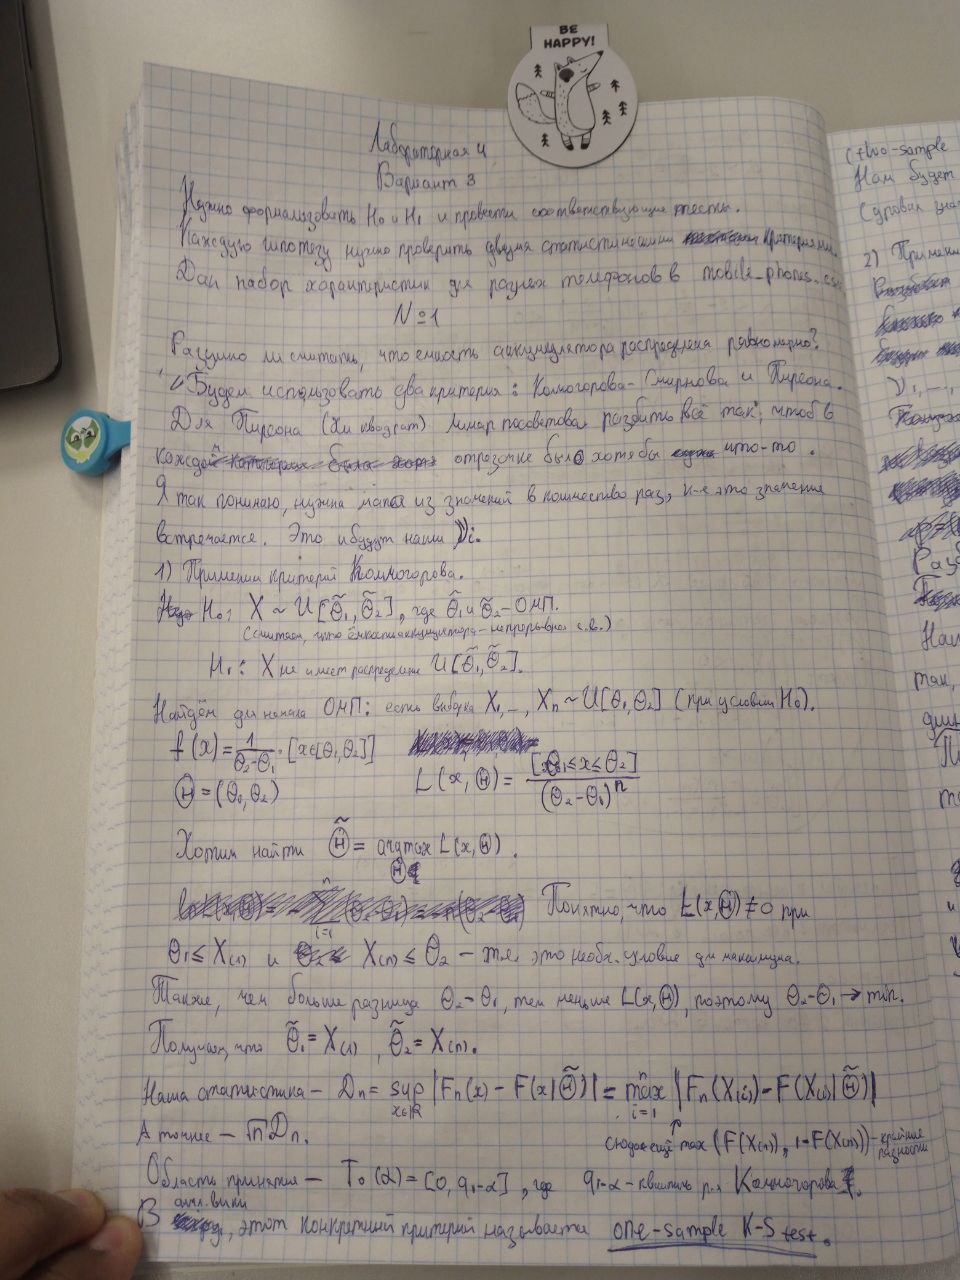 BE
HAPPY!
Лабораторная 4
Вариант 3
Нужно формализовать H₀ и H₁ и провести соответствующие тесты.
Каждую гипотезу нужно проверить двумя статистическими критериями.
Дан набор характеристик для разных телефонов в mobile_phones.csv
№1
Разумно ли считать, что ёмкость аккумулятора распределена равномерно?
Будем использовать два критерия: Колмогорова-Смирнова и Пирсона.
Для Пирсона (Хи квадрат) Линар посоветовал разбить всё так, чтоб в
каждом отрезочке было хотя бы что-то.
Я так понимаю, нужна мапа из значений в количество раз, к-е это значение
встречается. Это и будут наши νi.
1) Применим критерий Колмогорова.
H₀: X ~ U[θ̃₁, θ̃₂], где θ̃₁ и θ̃₂ - ОМП.
(считаем, что ёмкость аккумулятора - непрерывная с.в.)
H₁: X не имеет распределение U[θ̃₁, θ̃₂].
Найдём для начала ОМП: есть выборка X₁, ..., Xₙ ~ U[θ₁, θ₂] (при условии H₀).
f(x) = 1/(θ₂-θ₁) · [x∈[θ₁, θ₂]]
Θ = (θ₁, θ₂) L(x, Θ) = [θ₁ ≤ x ≤ θ₂]/(θ₂-θ₁)ⁿ
Хотим найти Θ̃ = argmax L(x, Θ).
Θ
Понятно, что L(x, Θ) ≠ 0 при
θ₁ ≤ X₍₁₎ и X₍ₙ₎ ≤ θ₂ - т.е. это необх. условие для максимума.
Также, чем больше разница θ₂-θ₁, тем меньше L(x, Θ), поэтому θ₂-θ₁ → min.
Получаем, что θ̃₁ = X₍₁₎, θ̃₂ = X₍ₙ₎.
Наша статистика - Dₙ = sup x∈ℝ |Fₙ(x) - F(x|Θ̃)| = max i=1 n |Fₙ(X₍ᵢ₎) - F(X₍ᵢ₎|Θ̃)|
А точнее - √n Dₙ. сюда ещё max (F(X₍₁₎), 1-F(X₍ₙ₎)) - крайние разности
Область принятия - T₀(α) = [0, q₁₋α], где q₁₋α - квантиль р-я Колмогорова.
В англ. вики, этот конкретный критерий называется one-sample K-S test.
(two-sample
Нам будет
2) Примени
ν₁, ...,
Разб
так,